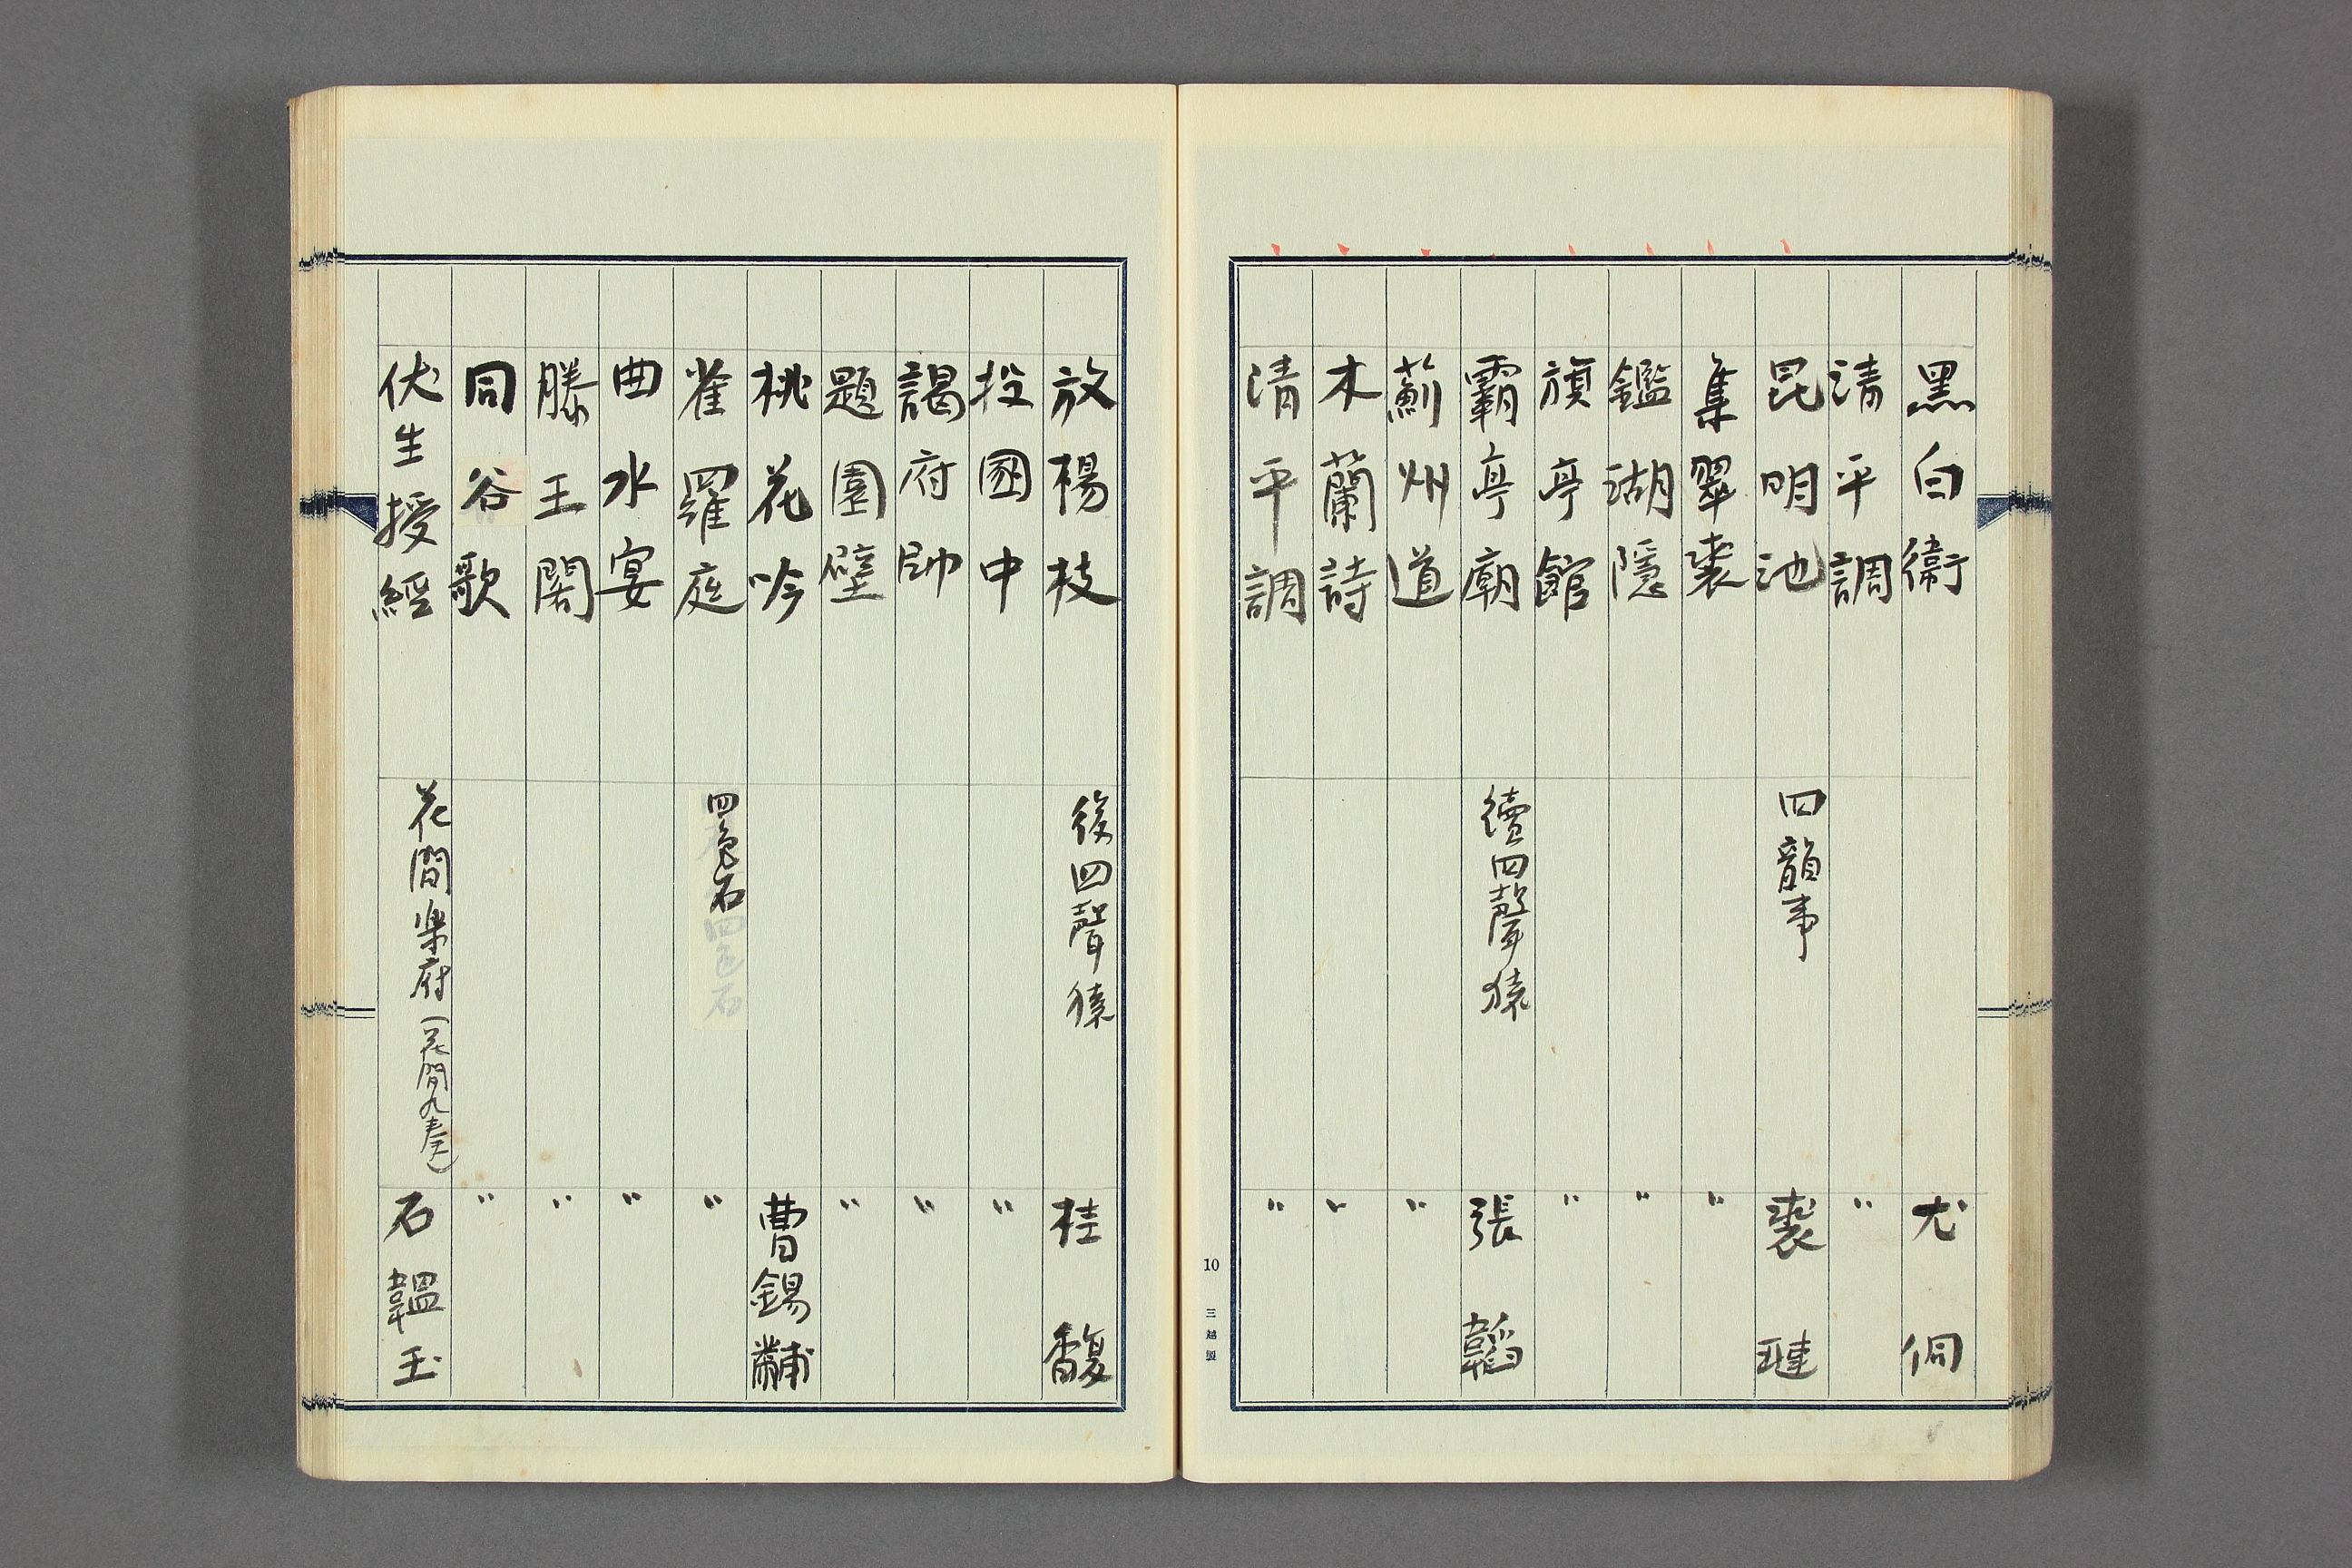 黑白衞 尤侗
清平調 〃
昆明池 四韻事 裘璉
集翠裘 〃
鑑湖隱 〃
旗亭館 〃
霸亭廟 續四聲猿 張韜
薊州道 〃
木蘭詩 〃
清平調 〃
10 三越製
放楊枝 後四聲猿 桂馥
投圂中 〃
謁府帥 〃
題園壁 〃
桃花吟 曹錫黼
雀羅庭 四色石 〃
曲水宴 〃
滕王閣 〃
同谷歌 〃
伏生授經 花間楽府(花間九奏) 石韞玉